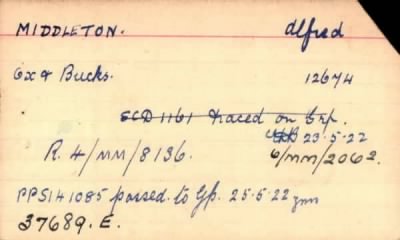 MIDDLETON. Alfred
Ox & Bucks. 12674
SCD 1161 traced on Grp.
23.5.22
R. 4/MM/8136. 6/MM/2062.
PPS141085 passed. to Gp. 25.5.22
37689. E.